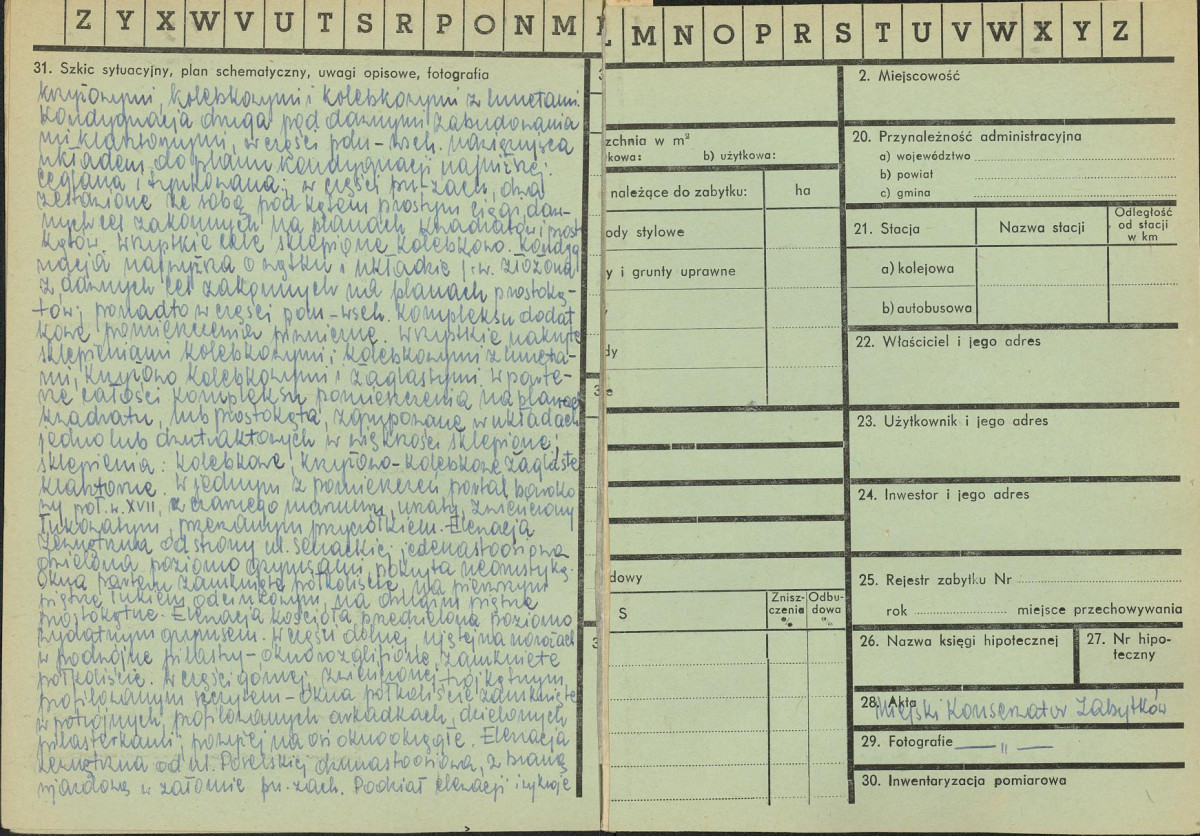 Z Y X W V U T S R P O N M
31. Szkic sytuacyjny, plan schematyczny, uwagi opisowe, fotografia
krzyżowymi, kolebkowymi i kolebkowymi z lunetami.
Kondygnacja druga pod dawnymi zabudowania
mi klasztornymi, w części płn-wsch. nawiązująca
układem do planu kondygnacji najniższej.
Ceglana i tynkowana; w części płn-zach. dwa
zestawione ze sobą pod kątem prostym ciągi daw-
nych cel zakonnych na planach kwadratów i prost
kątów. Wszystkie cele sklepione kolebkowo. Kondyg
nacja najwyższa o wątku i układzie j.w. złożona
z dawnych cel zakonnych na planach prostoką-
tów; ponadto w części płn-wsch. kompleksu dodat
kowe pomieszczenia piwniczne. Wszystkie nakryte
sklepieniami kolebkowymi; kolebkowymi z luneta-
mi, krzyżowo kolebkowymi i żaglastymi. W parte-
rze całości kompleksu pomieszczenia na planach
kwadratu, lub prostokąta, zgrupowane w układach
jedno lub dwutraktowych w większości sklepione;
sklepienia: kolebkowe, krzyżowo-kolebkowe żaglaste
klasztorne. W jednym z pomieszczeń portal baroko
wy poł. w. XVII, z czarnego marmuru, uszaty, zwieńczony
łukowatym, przerwanym przyczółkiem. Elewacja
zewnętrzna od strony ul. Senackiej jedenastoosiowa
dzielona poziomo gzymsami, pokryta
Okna parteru zamknięte półkoliście, na pierwszym
piętrze łukiem odcinkowym, na drugim piętrze
prostokątne. Elewacja kościoła przedzielona poziomo
wydatnym gzymsem. W części dolnej, ujętej na narożach
w podwójne pilastry - okno rozglifione, zamknięte
półkoliście. W części górnej zwieńczonej trójkątnym,
profilowanym szczytem - okna półkoliście zamknięte
w potrójnych, profilowanych arkadkach, dzielonych
pilasterkami; powyżej na osi okno okrągłe. Elewacja
zewnętrzna od ul. Poselskiej dwunastoosiowa, z bramą
wjazdową w załomie płn. zach. Podział elewacji i
L M N O P R S T U V W X Y Z
zchnia w m²
kowa: b) użytkowa:
należące do zabytku: ha
ody stylowe
y i grunty uprawne
dy
e
dowy
S Znisz-czenia % Odbu-dowa %
2. Miejscowość
20. Przynależność administracyjna
a) województwo
b) powiat
c) gmina
21. Stacja Nazwa stacji Odległość od stacji w km
a) kolejowa
b) autobusowa
22. Właściciel i jego adres
23. Użytkownik i jego adres
24. Inwestor i jego adres
25. Rejestr zabytku Nr
rok miejsce przechowywania
26. Nazwa księgi hipotecznej 27. Nr hipo-teczny
28. Akta Miejski Konserwator Zabytków
29. Fotografie — " —
30. Inwentaryzacja pomiarowa